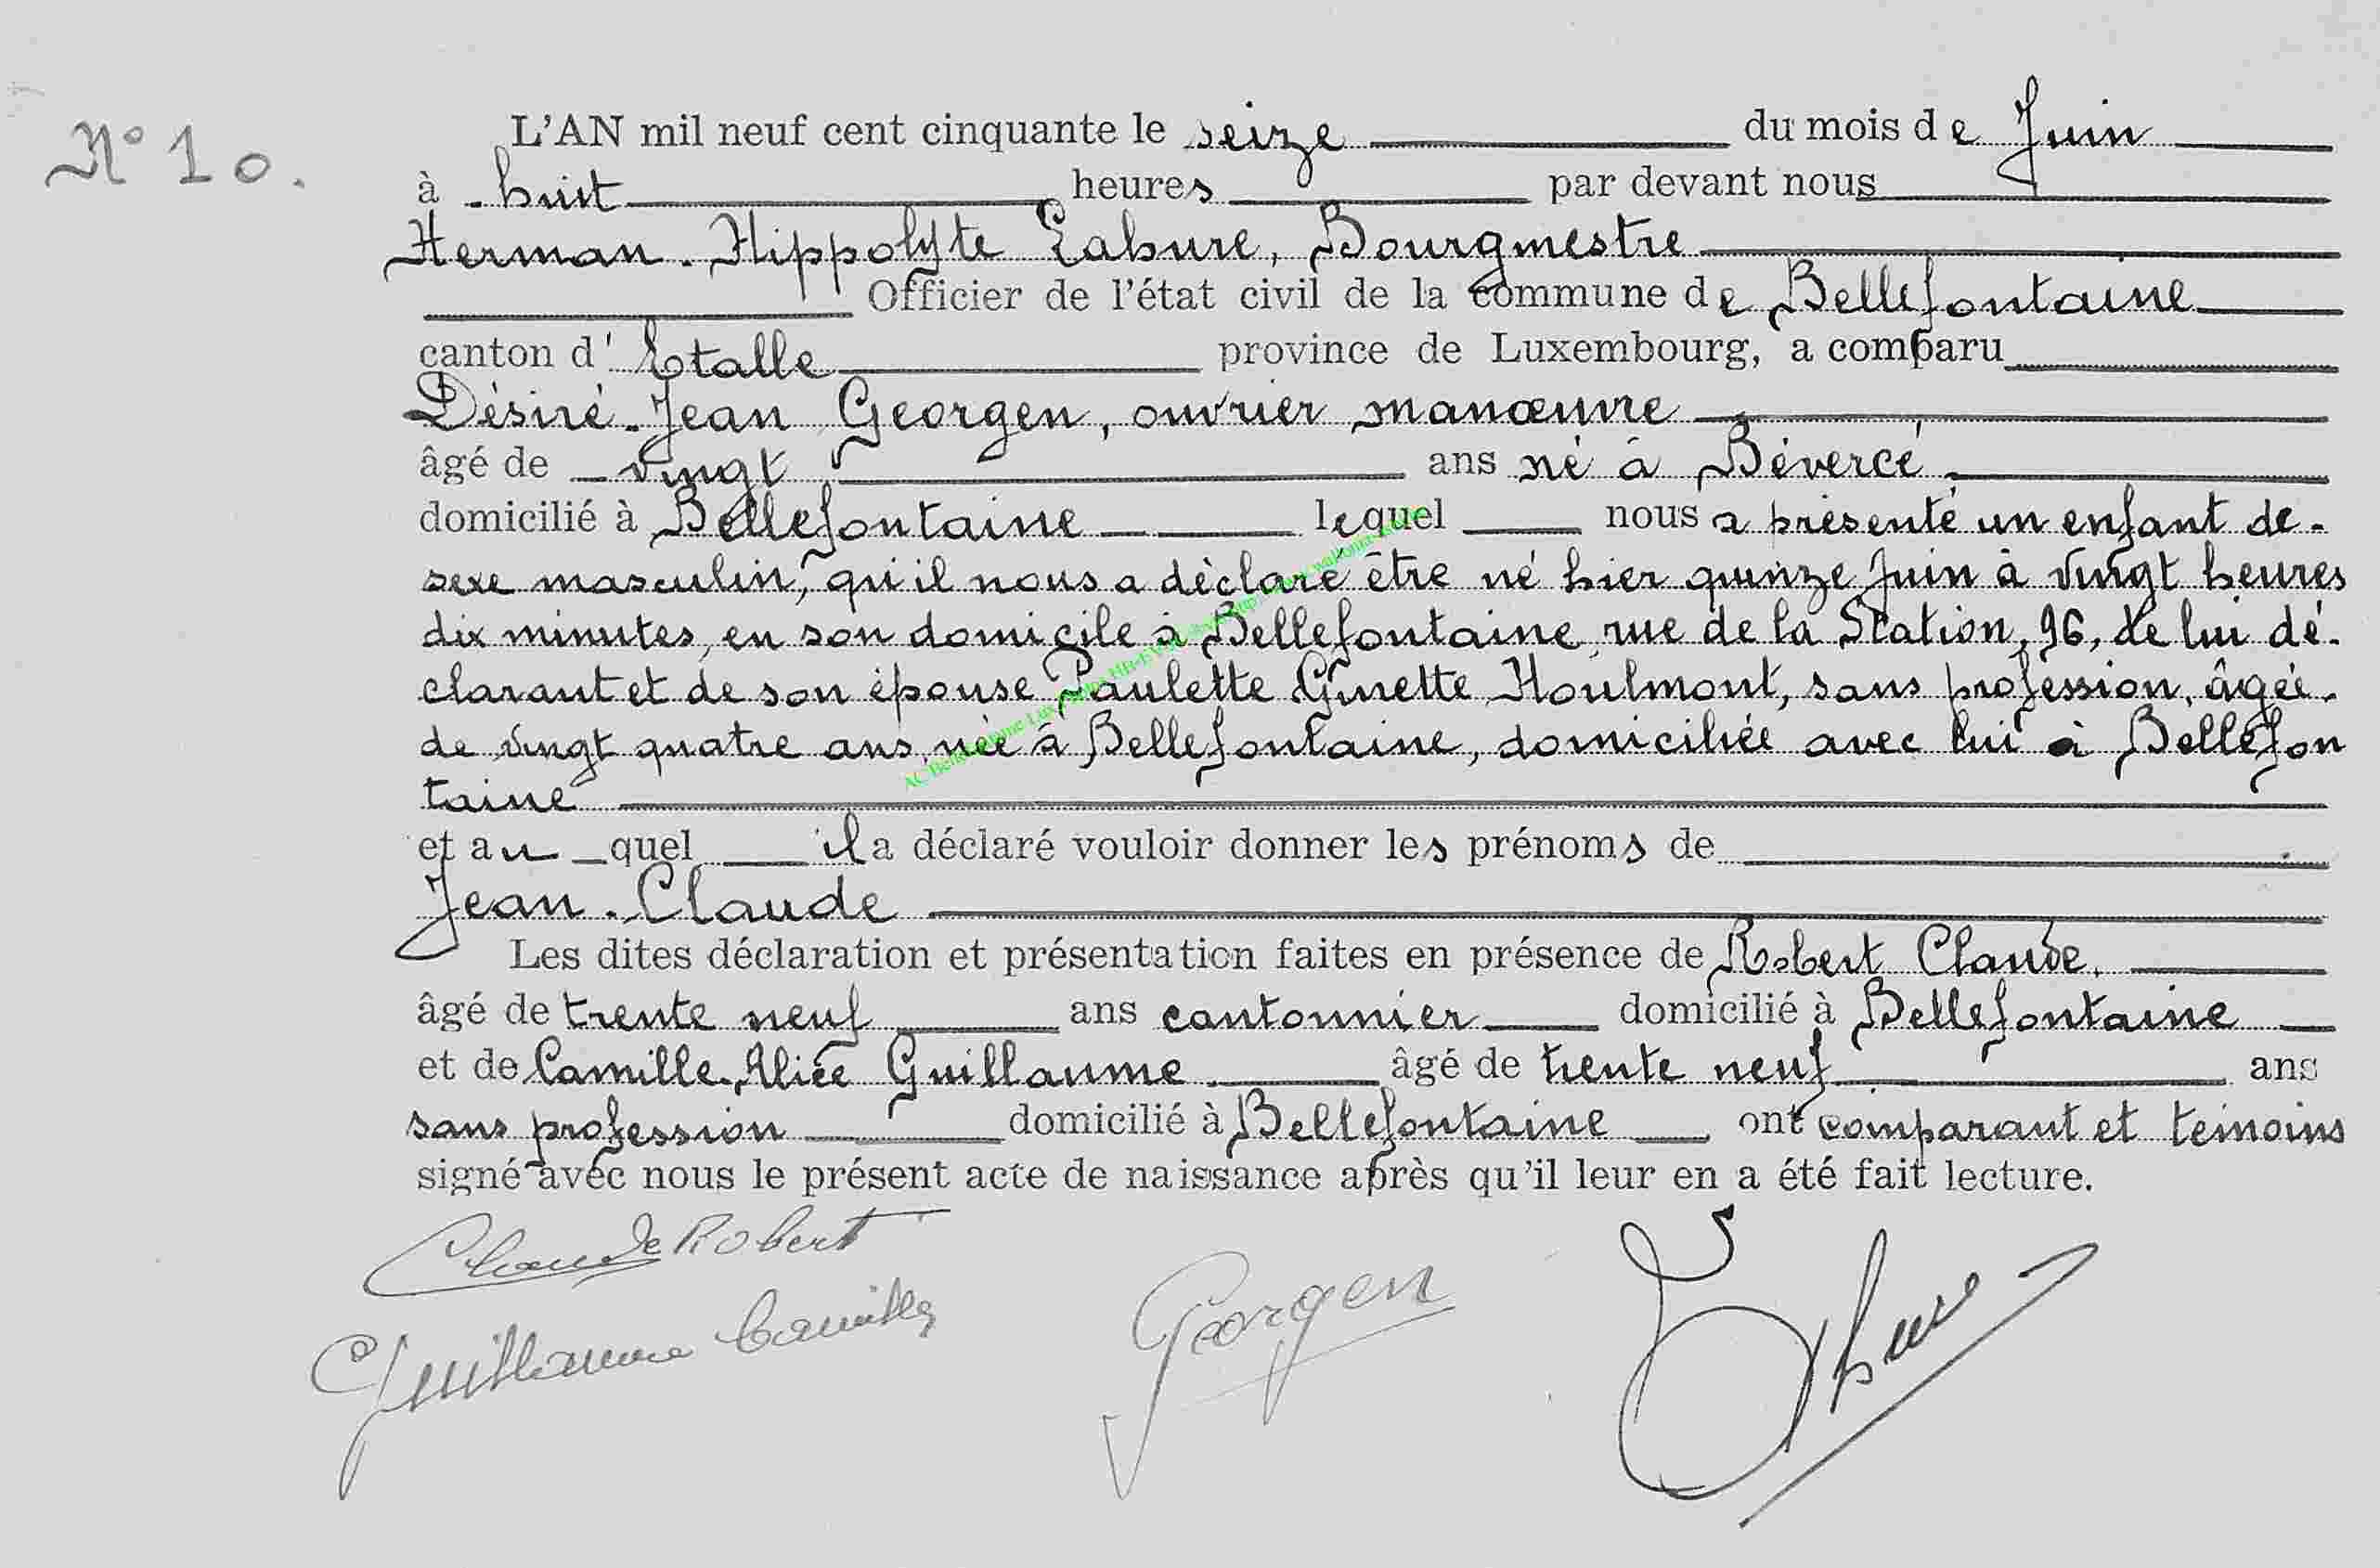 N° 10.
L'AN mil neuf cent cinquante le seize du mois de Juin
à huit heures par devant nous
Herman-Hippolyte Lahure, Bourgmestre
Officier de l'état civil de la commune de Bellefontaine
canton d'Etalle province de Luxembourg, a comparu
Désiré-Jean Georgen, ouvrier manœuvre
âgé de vingt ans né à Bévercé
domicilié à Bellefontaine lequel nous a présenté un enfant de
sexe masculin, qu'il nous a déclaré être né hier quinze Juin à vingt heures
dix minutes, en son domicile à Bellefontaine, rue de la Station, 96, de lui dé-
clarant et de son épouse Paulette Ginette Houlmont, sans profession, âgée
de vingt quatre ans, née à Bellefontaine, domiciliée avec lui à Bellefon
taine
et au quel il a déclaré vouloir donner les prénoms de
Jean-Claude
Les dites déclaration et présentation faites en présence de Robert Claude.
âgé de trente neuf ans cantonnier domicilié à Bellefontaine
et de Camille-Alice Guillaume âgé de trente neuf ans
sans profession domicilié à Bellefontaine ont comparant et témoins
signé avec nous le présent acte de naissance après qu'il leur en a été fait lecture.
Claude Robert
Guillaume Camille
Georgen
Lahure